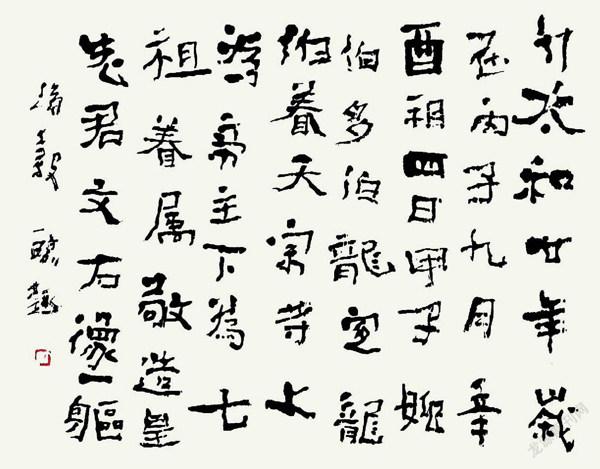 太和廿年歲
在丙子九月辛
酉朔四日甲子姚
伯多伯龍定龍
伯養天宗等上
帝主下為七
祖眷属敬造皇
先君文石像一軀